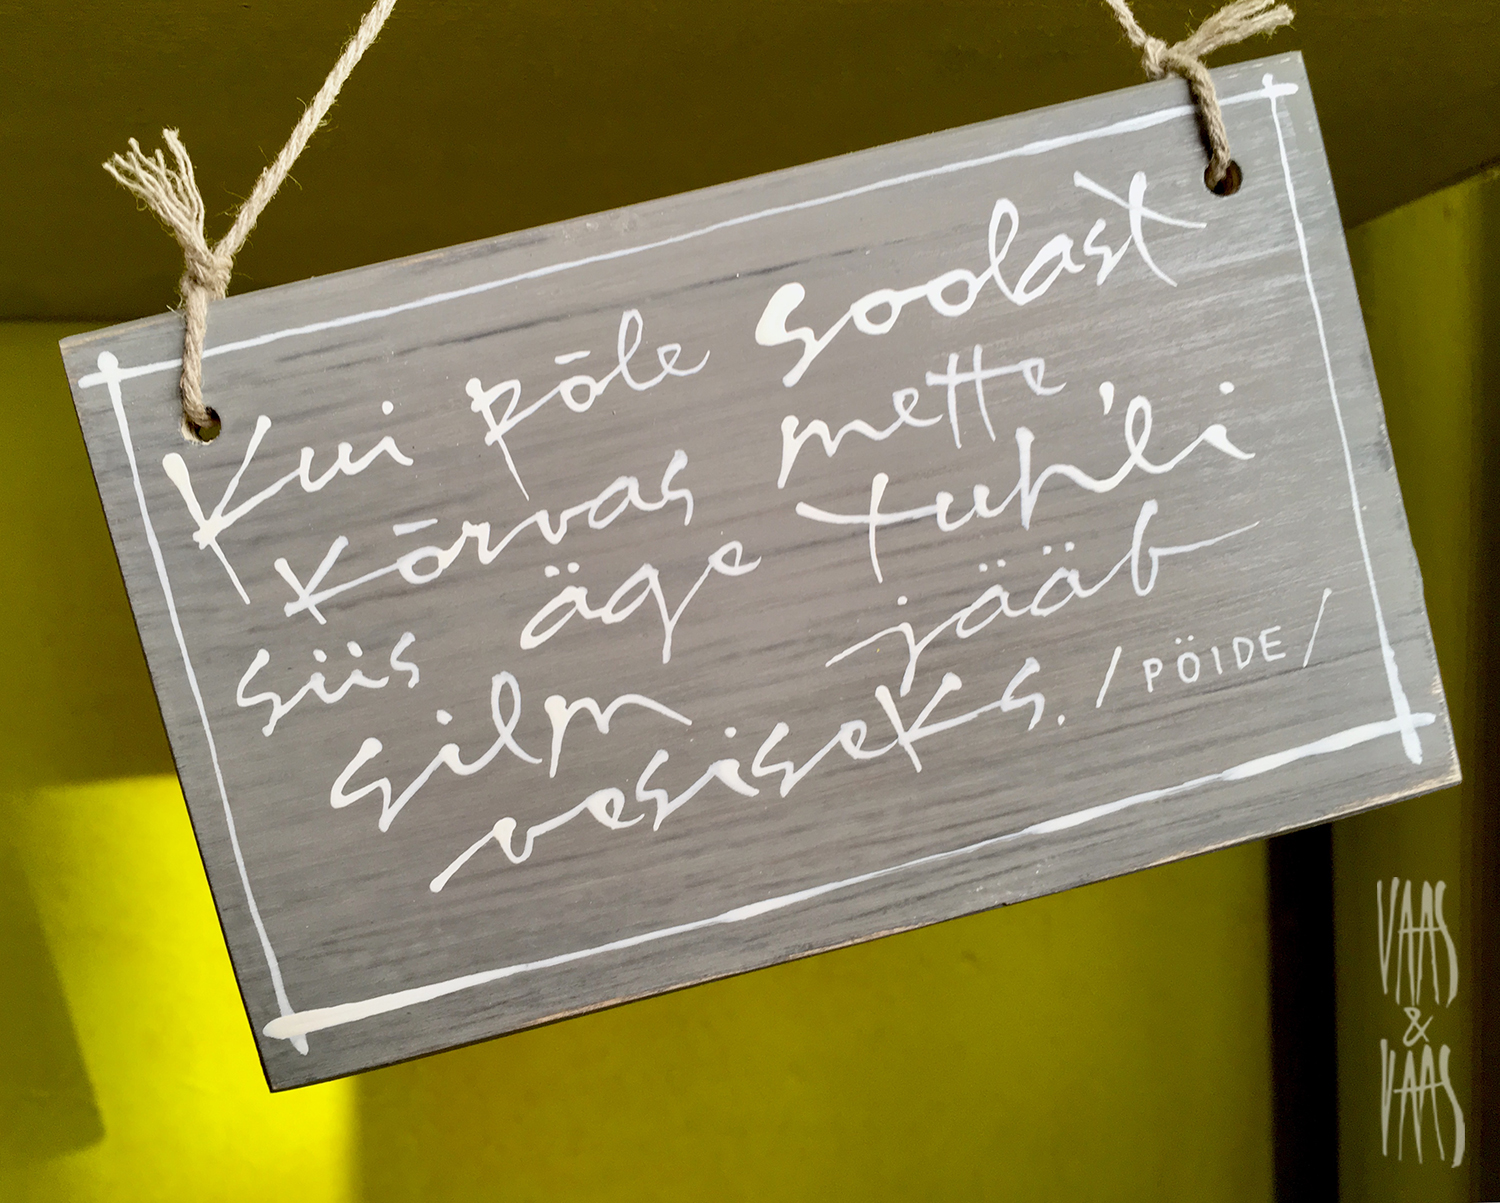 Kui põle soolast
kõrvas mette
siis äge tuhli
silm jääb
vesiseks. / PÖIDE /
VAAS
&
VAAS